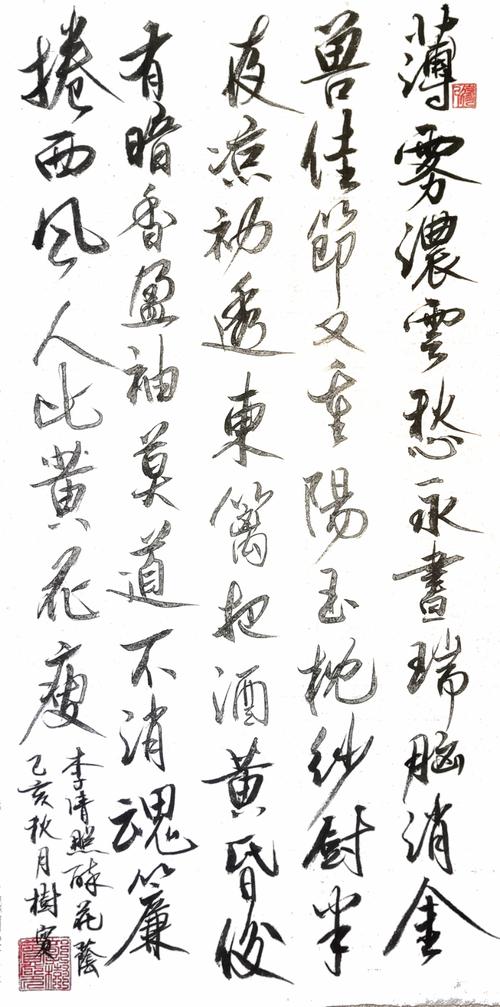 薄雾濃雲愁永晝瑞脑消金
兽佳節又重陽玉枕纱厨半
夜凉初透東籬把酒黄昏後
有暗香盈袖莫道不消魂簾
捲西风人比黄花瘦
李清照醉花蔭
乙亥秋月樹